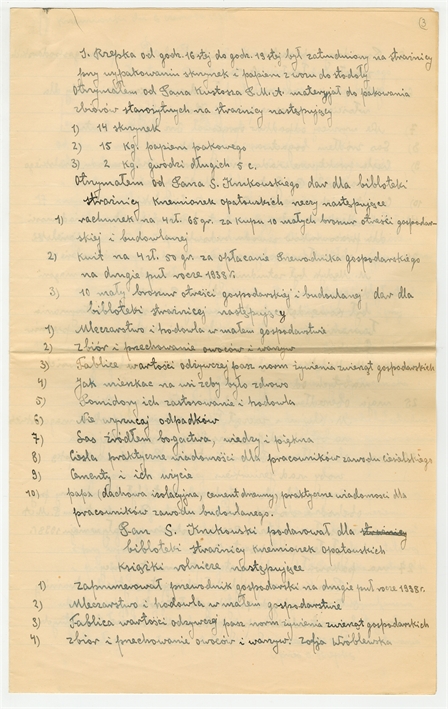 J. Rzepka od godz. 16stej do godz. 19stej był zatrudniony na strażnicy
przy wypakowaniu skrzynek i papieru z wozu do stodoły
Otrzymałem od Pana Kustosza P.M.A. materyjał do pakowania
zbiorów starożytnych na strażnicy następujący
1) 14 skrzynek
2) 15 Kg. papieru pakowego
3) 2 Kg. gwoździ długich 5 c.
Otrzymałem od Pana S. Krukowskiego dar dla bibloteki
strażnicy Krzemionek opatowskich rzeczy następujące
1) rachunek na 4 zł. 65 gr. za kupno 10 małych broszur o treści gospodar-
skiej i budowlanej
2) kwit na 4 zł. 50 gr. za opłacanie Przewodnika gospodarskiego
na drugie puł rocze 1938 r.
3) 10 mały broszur o treści gospodarskiej i budowlanej dar dla
bibloteki strażnicej następujący
1) Mleczarstwo i hodowla w małem gospodarstwie
2) Zbiór i przechowanie owoców i warzyw
3) Tablice wartości odżywczej pasz norm żywienia zwierząt gospodarskich
4) Jak mieszkac na wsi żeby było zdrowo
5) Pomidory ich zastosowanie i hodowla
6) Nie wyrzucaj odpadków
7) Las źródłem bogactwa, wiedzy i piękna
8) Cieśla praktyczne wiadomości dla pracowników zawodu ciesielskiego
9) Cementy i ich użycie
10) papa dachowa izolacyjna, cement drzewny, praktyczne wiadomosci dla
pracowników zawodu budowlanego.
Pan S. Krukowski podarował dla strażnicy
bibloteki strażnicy Krzemionek Opatowskich
Książki rolnicze następujące
1) Zaprenumerował przewodnik gospodarski na drugie puł rocze 1938 r.
2) Mleczarstwo i hodowla w małem gospodarstwie
3) Tablica wartości odżywczej pasz norm żywienia zwierząt gospodarskich
4) Zbiór i przechowanie owoców i warzyw. Zofja Wróblewska